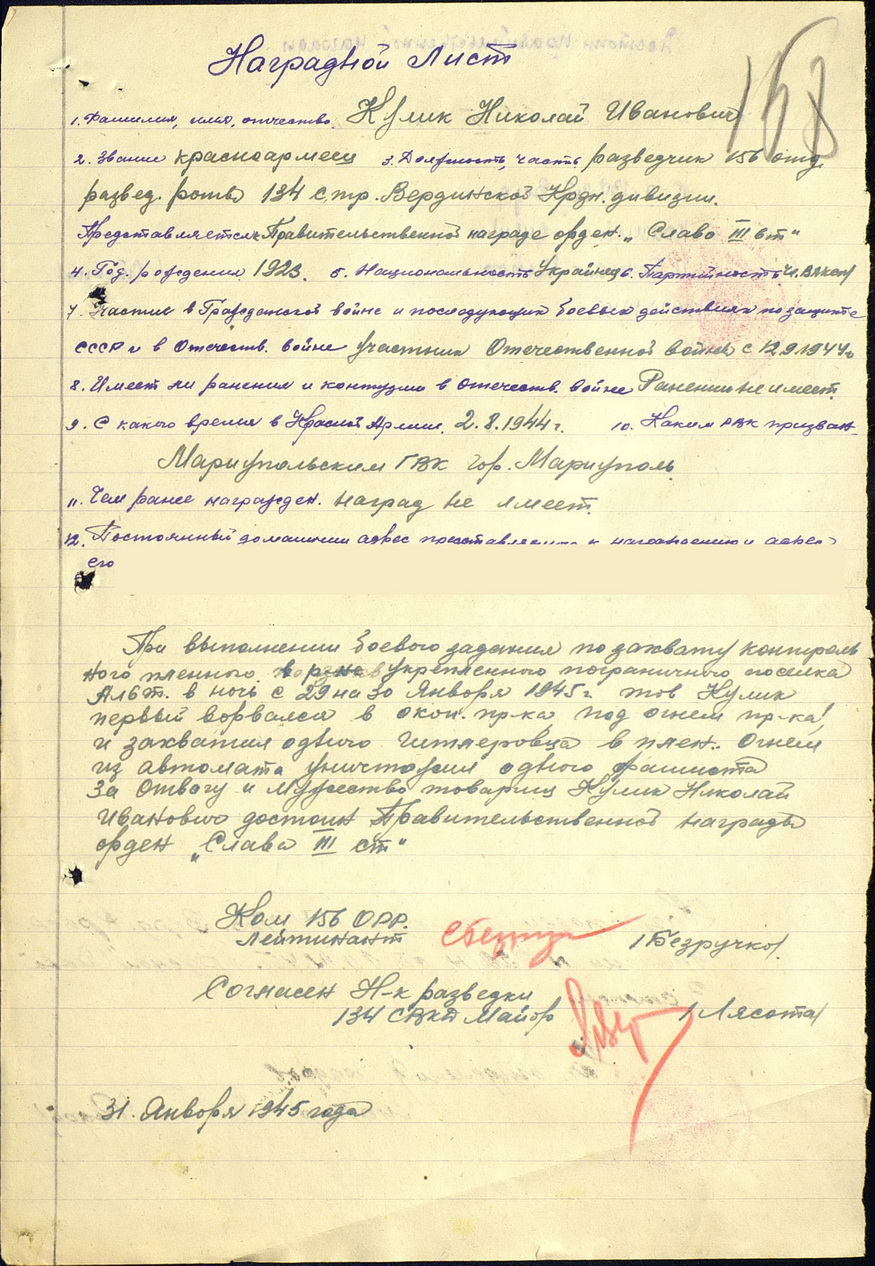 Наградной Лист
158
1. Фамилия, имя, отчество. Кулик Николай Иванович
2. Звание красноармеец 3. Должность, часть разведчик 156 отд.
развед. роты 134 с. Вердинской Крзн. дивизии.
Представляется к Правительственной награде орден „Слава III ст“
4. Год. рождения 1923. 5. Национальность Украинец 6. Партийность чл. ВЛКСМ
7. Участие в Гражданской войне и последующих боевых действиях по защите
СССР и в Отечеств. войне участник Отечественной войны с 12.9.1944г.
8. Имеет ли ранения и контузии в отечеств. войне Ранений не имеет.
9. С какого времени в Красной Армии. 2.8.1944г. 10. Каким РВК призван
Мариупольским ГВК гор. Мариуполь.
11. Чем ранее награжден. наград не имеет.
12. Постоянный домашний адрес представляемого к награждению и адрес
его
При выполнении боевого задания по захвату контроль
ного пленного в р-не укрепленного пограничного поселка
Альт. в ночь с 29 на 30 Января 1945г тов Кулик
первый ворвался в окоп. пр-ка под огнем пр-ка,
и захватил одного гитлеровца в плен. Огнем
из автомата уничтожил одного фашиста
За Отвагу и Мужество товарищ Кулик Николай
Иванович достоин Правительственной награды
орден „Слава III ст“
Ком 156 ОРР.
Лейтинант /Безручко/.
Согласен Н-к разведки
134 СВКД Майор /Лясота/
31. Января 1945 года